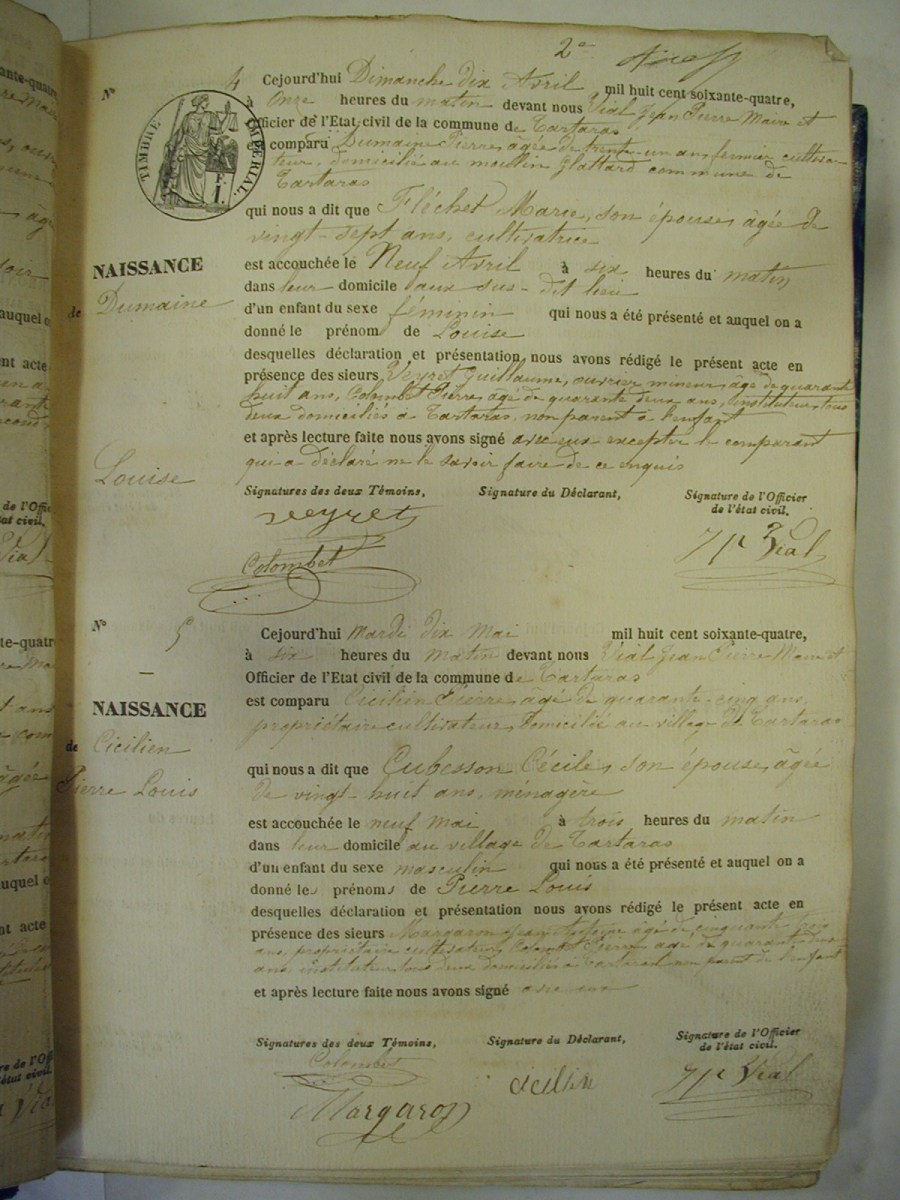 2e
No 4
TIMBRE IMPÉRIAL
F. 1.
Cejourd'hui Dimanche dix Avril mil huit cent soixante-quatre,
à onze heures du matin devant nous Vial Jean Pierre Maire et
Officier de l'Etat civil de la commune de Tartaras
est comparu Dumaine Pierre, âgé de trente-un ans fermier cultiva-
teur, domicilié au moulin commune de
Tartaras
qui nous a dit que Fléchet Marie, son épouse, âgée de
vingt-sept ans, cultivatrice
NAISSANCE
de Dumaine
Louise
est accouchée le Neuf Avril à six heures du matin
dans leur domicile aux sus-dit lieu
d'un enfant du sexe féminin qui nous a été présenté et auquel on a
donné le prénom de Louise
desquelles déclaration et présentation nous avons rédigé le présent acte en
présence des sieurs Veyret Guillaume, ouvrier mineur, âgé de quarante
huit ans, Colombet Pierre, âgé de quarante deux ans, instituteur, tous
deux domiciliés à Tartaras, non parent à l'enfant
et après lecture faite nous avons signé avec eux excepter le comparant
qui a déclaré ne le savoir faire de ce enquis
Signatures des deux Témoins, Signature du Déclarant, Signature de l'Officier
de l'état civil.
Veyret
Colombet
JP Vial
No 5
Cejourd'hui mardi dix Mai mil huit cent soixante-quatre,
à six heures du matin devant nous Vial Jean Pierre Maire et
Officier de l'Etat civil de la commune de Tartaras
est comparu Cicilien Pierre, âgé de quarante-cinq ans
propriétaire cultivateur, domicilié au village de Tartaras
NAISSANCE
de Cicilien
Pierre Louis
qui nous a dit que Cubesson Cécile, son épouse, âgée
de vingt-huit ans, ménagère
est accouchée le neuf mai à trois heures du matin
dans leur domicile au village de Tartaras
d'un enfant du sexe masculin qui nous a été présenté et auquel on a
donné les prénoms de Pierre Louis
desquelles déclaration et présentation nous avons rédigé le présent acte en
présence des sieurs Margaron Jean âgé de cinquante trois
ans, propriétaire cultivateur, Colombet Pierre, âgé de quarante deux
ans, instituteur, tous deux domiciliés à Tartaras non parent de l'enfant
et après lecture faite nous avons signé avec eux
Signatures des deux Témoins, Signature du Déclarant, Signature de l'Officier
de l'état civil.
Colombet
Margaron
cicilien
JP Vial